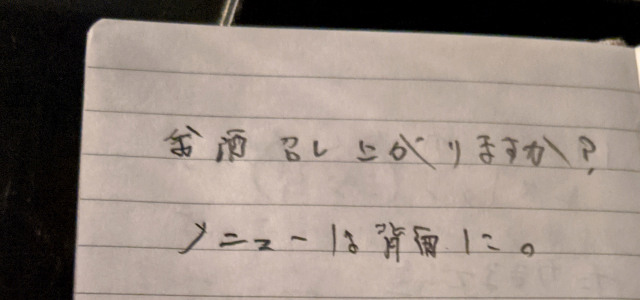 お酒召し上がりますか?
メニューは背面に。